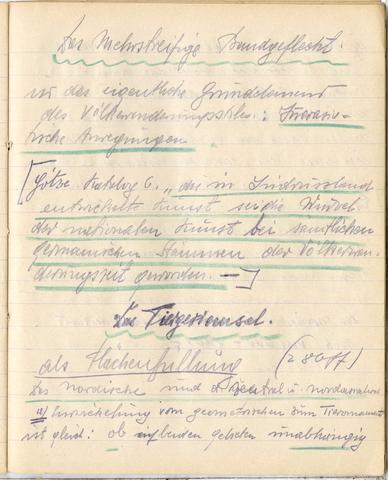 Das Mehrstreifige Bandgeflecht.
ist das eigentliche Grundelement
des Völkerwanderungsstiles:
tische Anregungen
[Götze Katalog 6. „die in Südrussland
entwickelte Kunst sei die Wurzel
der nationalen Kunst bei sämtlichen
germanischen Stämmen der Völkerwan-
derungszeit geworden. —]
Das Tiergeriemsel.
als Flächenfüllung (280ff)
Das nordische und zentral u. nordasiatische
Entwickelung vom geometrischen zum Tierornament
ist gleich: ob auf beiden Gebieten unabhängig